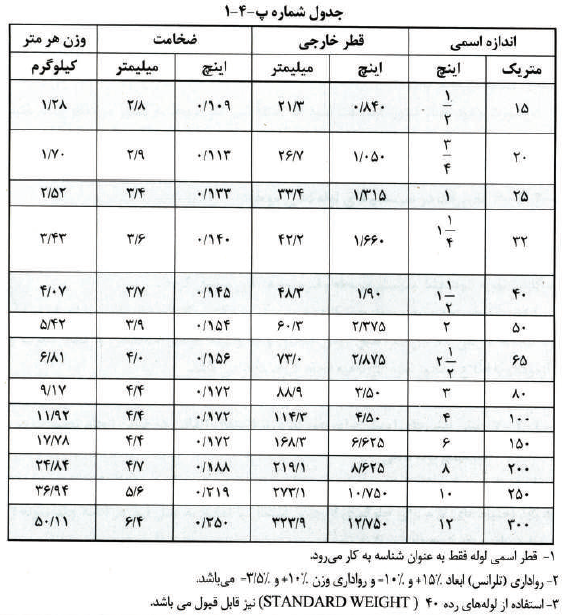 جدول شماره پ-۴-۱
اندازه اسمی قطر خارجی ضخامت وزن هر متر
متریک اینچ اینچ میلیمتر اینچ میلیمتر کیلوگرم
۱۵ ۱/۲ ۰/۸۴۰ ۲۱/۳ ۰/۱۰۹ ۲/۸ ۱/۲۸
۲۰ ۳/۴ ۱/۰۵۰ ۲۶/۷ ۰/۱۱۳ ۲/۹ ۱/۷۰
۲۵ ۱ ۱/۳۱۵ ۳۳/۴ ۰/۱۳۳ ۳/۴ ۲/۵۲
۳۲ ۱ ۱/۴ ۱/۶۶۰ ۴۲/۲ ۰/۱۴۰ ۳/۶ ۳/۴۳
۴۰ ۱ ۱/۲ ۱/۹۰ ۴۸/۳ ۰/۱۴۵ ۳/۷ ۴/۰۷
۵۰ ۲ ۲/۳۷۵ ۶۰/۳ ۰/۱۵۴ ۳/۹ ۵/۴۲
۶۵ ۲ ۱/۲ ۲/۸۷۵ ۷۳/۰ ۰/۱۵۶ ۴/۰ ۶/۸۱
۸۰ ۳ ۳/۵۰ ۸۸/۹ ۰/۱۷۲ ۴/۴ ۹/۱۷
۱۰۰ ۴ ۴/۵۰ ۱۱۴/۳ ۰/۱۷۲ ۴/۴ ۱۱/۹۲
۱۵۰ ۶ ۶/۶۲۵ ۱۶۸/۳ ۰/۱۷۲ ۴/۴ ۱۷/۷۸
۲۰۰ ۸ ۸/۶۲۵ ۲۱۹/۱ ۰/۱۸۸ ۴/۷ ۲۴/۸۴
۲۵۰ ۱۰ ۱۰/۷۵۰ ۲۷۳/۱ ۰/۲۱۹ ۵/۶ ۳۶/۹۴
۳۰۰ ۱۲ ۱۲/۷۵۰ ۳۲۳/۹ ۰/۲۵۰ ۶/۴ ۵۰/۱۱
۱- قطر اسمی لوله فقط به عنوان شناسه به کار می‌رود.
۲- رواداری (تلرانس) ابعاد ۱۵٪+ و ۱۰٪- و رواداری وزن ۱۰٪+ و ۳/۵٪- می‌باشد.
۳- استفاده از لوله‌های رده ۴۰ (STANDARD WEIGHT) نیز قابل قبول می باشد.